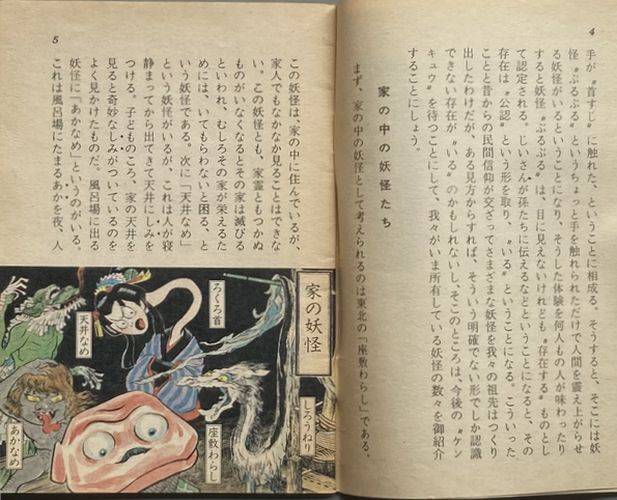 4
手が〝首すじ〟に触れた、ということに相成る。そうすると、そこには妖
怪〝ぶるぶる〟というちょっと手を触れられただけで人間を震え上がらせ
る妖怪がいるということになり、そうした体験を何人もの人が味わったり
すると妖怪〝ぶるぶる〟は、目に見えないけれども〝存在する〟ものとし
て認定される。じいさんが孫たちに伝えるなどということになると、その
存在は〝公認〟という形を取り、〝いる〟ということになる。こういった
ことと昔からの民間信仰が交ざってさまざまな妖怪を我々の祖先はつくり
出したわけだが、ある見方からすれば、そういう明確でない形でしか認識
できない存在が〝いる〟のかもしれないし、そこのところは今後の〝ケン
キュウ〟を待つことにして、我々がいま所有している妖怪の数々を御紹介
することにしょう。
家の中の妖怪たち
まず、家の中の妖怪として考えられるのは東北の「座敷わらし」である。
5
この妖怪は、家の中に住んでいるが、
家人でもなかなか見ることはできな
い。この妖怪とも、家霊ともつかぬ
ものがいなくなるとその家は滅びる
といわれ、むしろその家が栄えるた
めには、いてもらわないと困る、と
いう妖怪である。次に「天井なめ」
という妖怪がいるが、これは人が寝
静まってから出てきて天井にしみを
つける。子どものころ、家の天井を
見ると奇妙なしみがついているのを
よく見かけたものだ。風呂場に出る
妖怪に「あかなめ」というのがいる。
これは風呂場にたまるあかを夜、人
家の妖怪
しろうねり
ろくろ首
座敷わらし
天井なめ
あかなめ